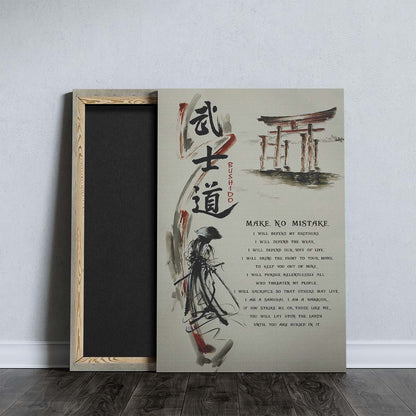 武士道
BUSHIDO
MAKE NO MISTAKE.
I WILL DEFEND MY BROTHERS.
I WILL DEFEND THE WEAK.
I WILL DEFEND OUR WAY OF LIFE.
I WILL BRING THE FIGHT TO YOUR HOME,
TO KEEP YOU OUT OF MINE.
I WILL PURSUE RELENTLESSLY ALL
WHO THREATEN MY PEOPLE.
I WILL SACRIFICE SO THAT OTHERS MAY LIVE.
I AM A SAMURAI. I AM A WARRIOR.
IF YOU STRIKE ME OR THOSE LIKE ME,
YOU WILL LAY UPON THE EARTH
UNTIL YOU ARE BURIED IN IT.